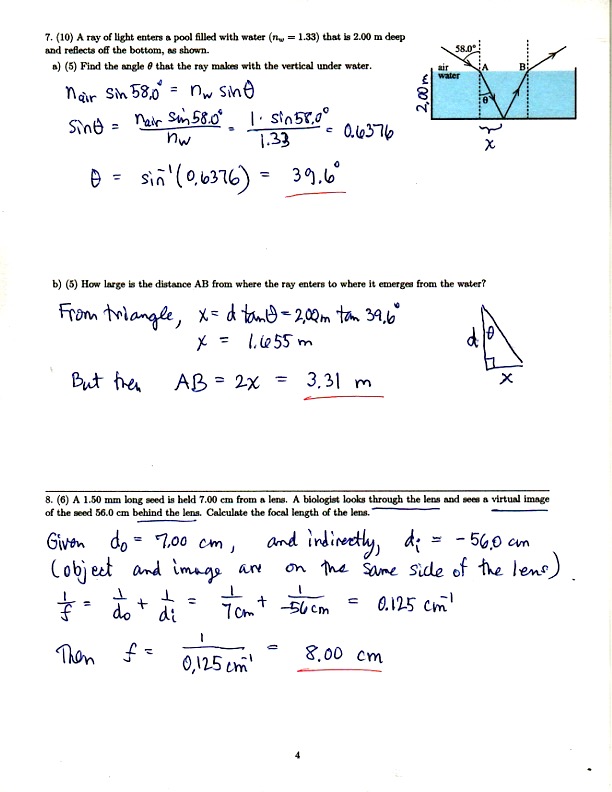 7. (10) A ray of light enters a pool filled with water (n_w = 1.33) that is 2.00 m deep
and reflects off the bottom, as shown.
a) (5) Find the angle θ that the ray makes with the vertical under water.
58.0°
air
water
A
B
θ
2.00 m
x
n_air sin 58.0° = n_w sin θ
sin θ = n_air sin 58.0° / n_w = 1 · sin 58.0° / 1.33 = 0.6376
θ = sin⁻¹(0.6376) = 39.6°
b) (5) How large is the distance AB from where the ray enters to where it emerges from the water?
From triangle, x = d tan θ = 2.00m tan 39.6°
x = 1.655 m
d
θ
x
But then AB = 2x = 3.31 m
8. (6) A 1.50 mm long seed is held 7.00 cm from a lens. A biologist looks through the lens and sees a virtual image
of the seed 56.0 cm behind the lens. Calculate the focal length of the lens.
Given d_o = 7.00 cm, and indirectly, d_i = -56.0 cm
(object and image are on the same side of the lens)
1/f = 1/d_o + 1/d_i = 1/7cm + 1/-56cm = 0.125 cm⁻¹
Then f = 1/0.125 cm⁻¹ = 8.00 cm
4